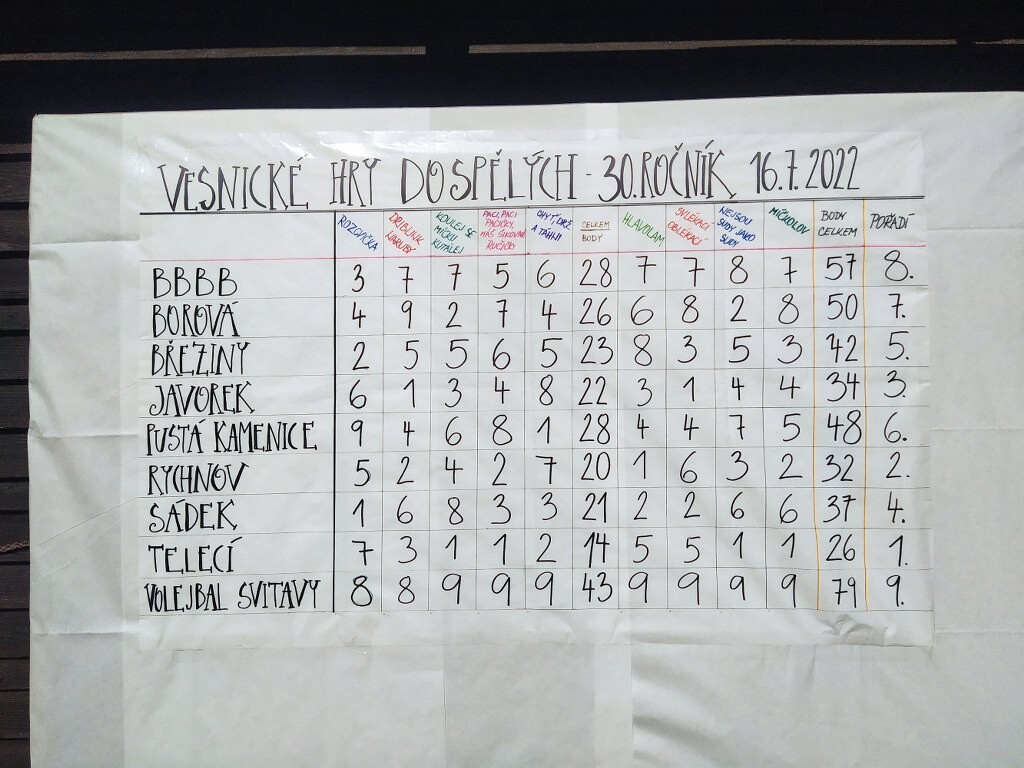 VESNICKÉ HRY DOSPĚLÝCH - 30. ROČNÍK 16.7.2022
ROZCVIČKA DRIBLINK KOULEJ SE MÍČKU KUTÁLEJ PACI, PACI PACIČKY, MÁŠ ŠIKOVNÉ RUČIČKY CHYŤ, DRŽ A TÁHNI CELKEM BODY HLAVOLAM SVLÉKACÍ OBLÉKACÍ NEJSOU SUDY JAKO SUDY MÍČKOLOV BODY CELKEM POŘADÍ
BBBB 3 7 7 5 6 28 7 7 8 7 57 8.
BOROVÁ 4 9 2 7 4 26 6 8 2 8 50 7.
BŘEZINY 2 5 5 6 5 23 8 3 5 3 42 5.
JAVOREK 6 1 3 4 8 22 3 1 4 4 34 3.
PUSTÁ KAMENICE 9 4 6 8 1 28 4 4 7 5 48 6.
RYCHNOV 5 2 4 2 7 20 1 6 3 2 32 2.
SÁDEK 1 6 8 3 3 21 2 2 6 6 37 4.
TELECÍ 7 3 1 1 2 14 5 5 1 1 26 1.
VOLEJBAL SVITAVY 8 8 9 9 9 43 9 9 9 9 79 9.